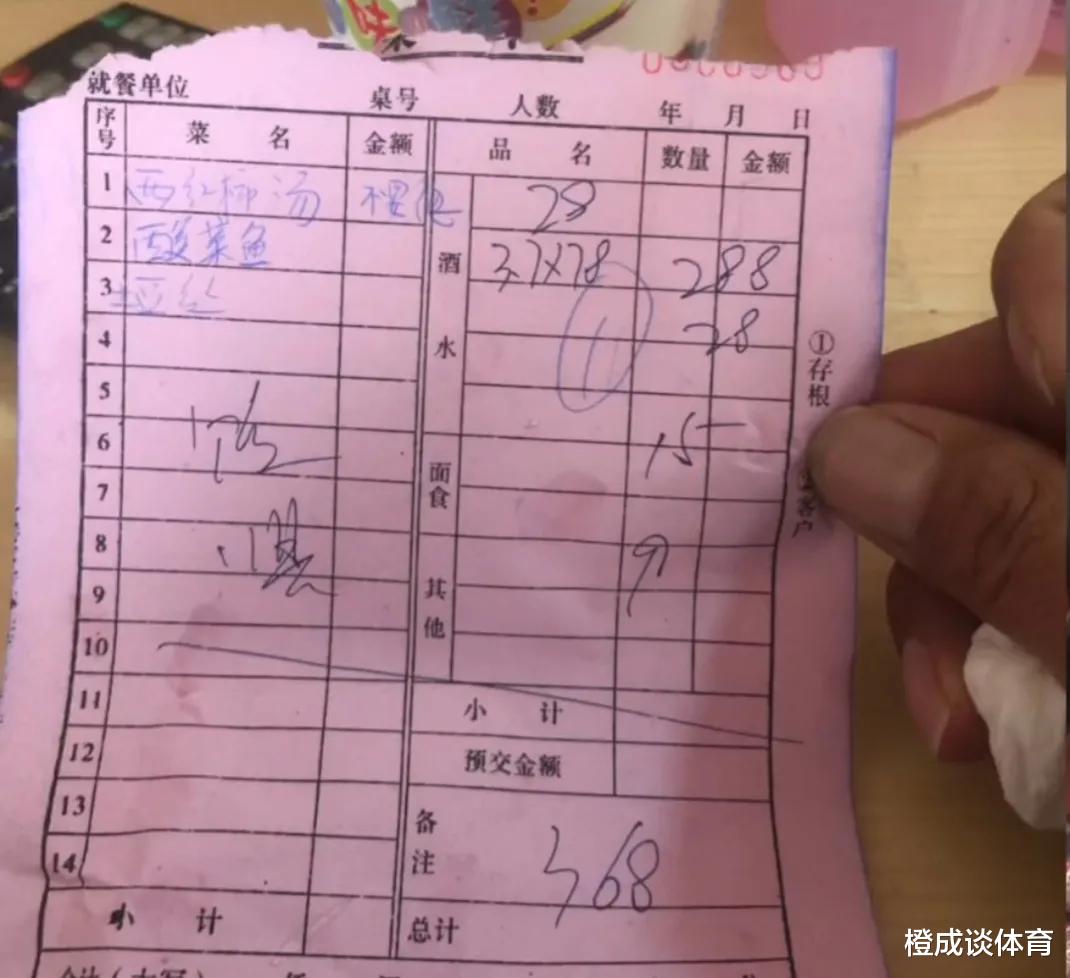 味
就餐单位 桌号 人数 年 月 日
序号 菜名 金额 品名 数量 金额
1 西红柿汤 28
2 酸菜鱼 酒水 3.7×78 288
3 豆丝 28
4 1
5
6 15
7 面食
8 9
9 其他
10
11 小计
12 预交金额
13 备注
14 368
小计 总计
①存根
②客户
橙成谈体育